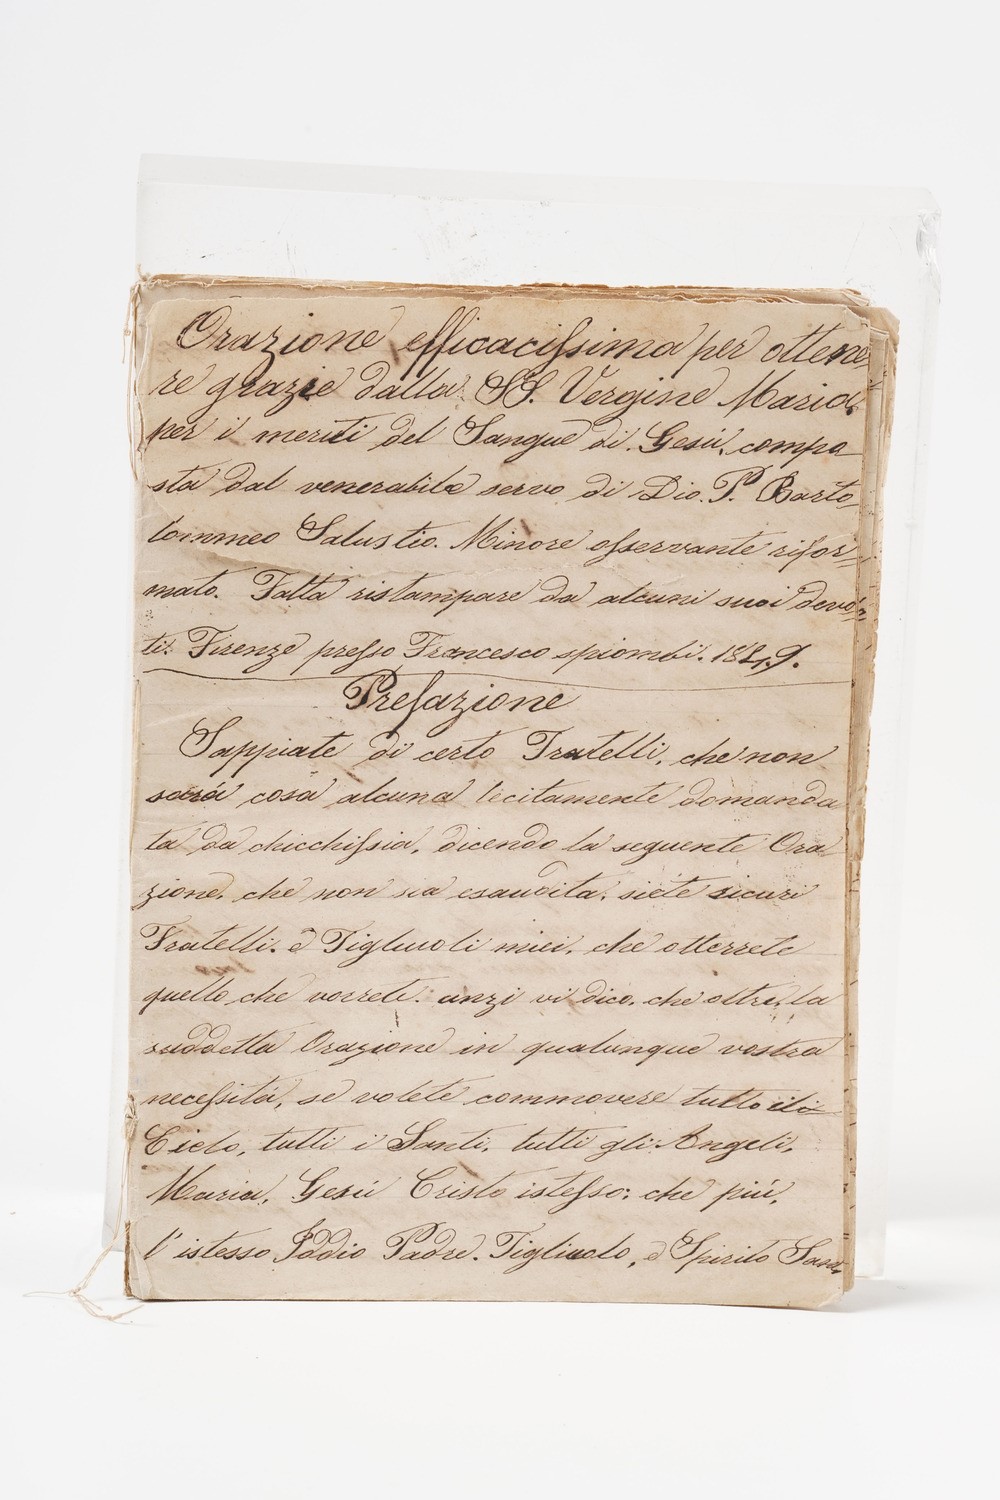 Orazione efficacissima per ottene
re grazie dalla SS. Vergine Maria
per i meriti del Sangue di Gesú, compo
sta dal venerabile servo di Dio. P. Barto
lommeo Salustio. Minore osservante rifor=
mato. Fatta ristampare da alcuni suoi devo=
ti: Firenze presso Francesco spiombi. 1849.
Prefazione
Sappiate di certo Fratelli, che non
sará cosa alcuna lecitamente domanda
ta da chicchissia, dicendo la seguente Ora
zione, che non sia esaudita, siete sicuri
Fratelli. e Figliuoli miei, che otterrete
quello che vorrete. anzi vi dico, che oltre la
suddetta Orazione in qualunque vostra
necessitá, se volete commovere tutto il
Cielo, tutti i Santi, tutti gli Angeli,
Maria, Gesú Cristo istesso; che piú,
l'istesso Iddio Padre. Figliuolo, e Spirito Sant